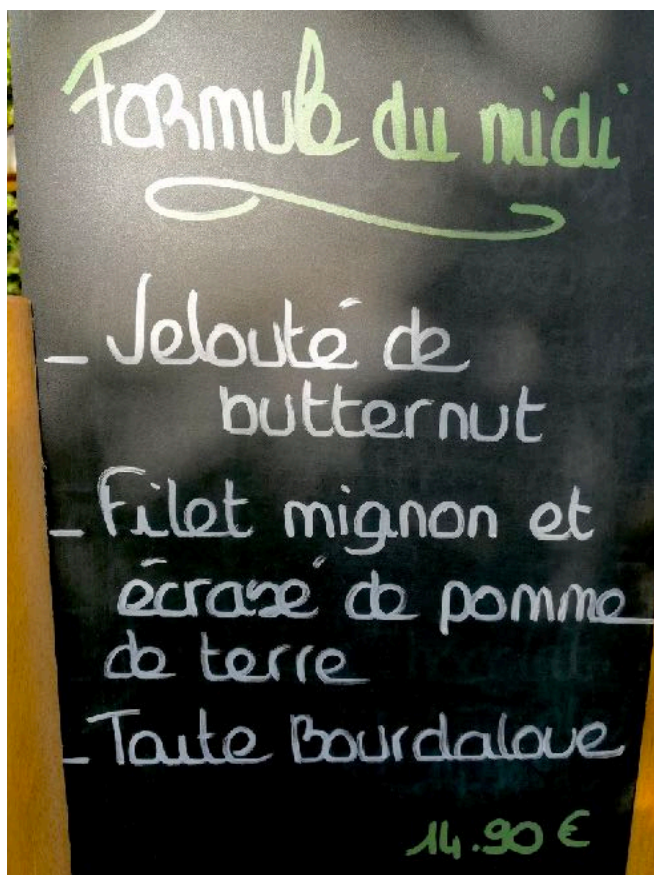 Formule du midi
- Velouté de
butternut
- Filet mignon et
écrasé de pomme
de terre
- Tarte Bourdaloue
14.90 €